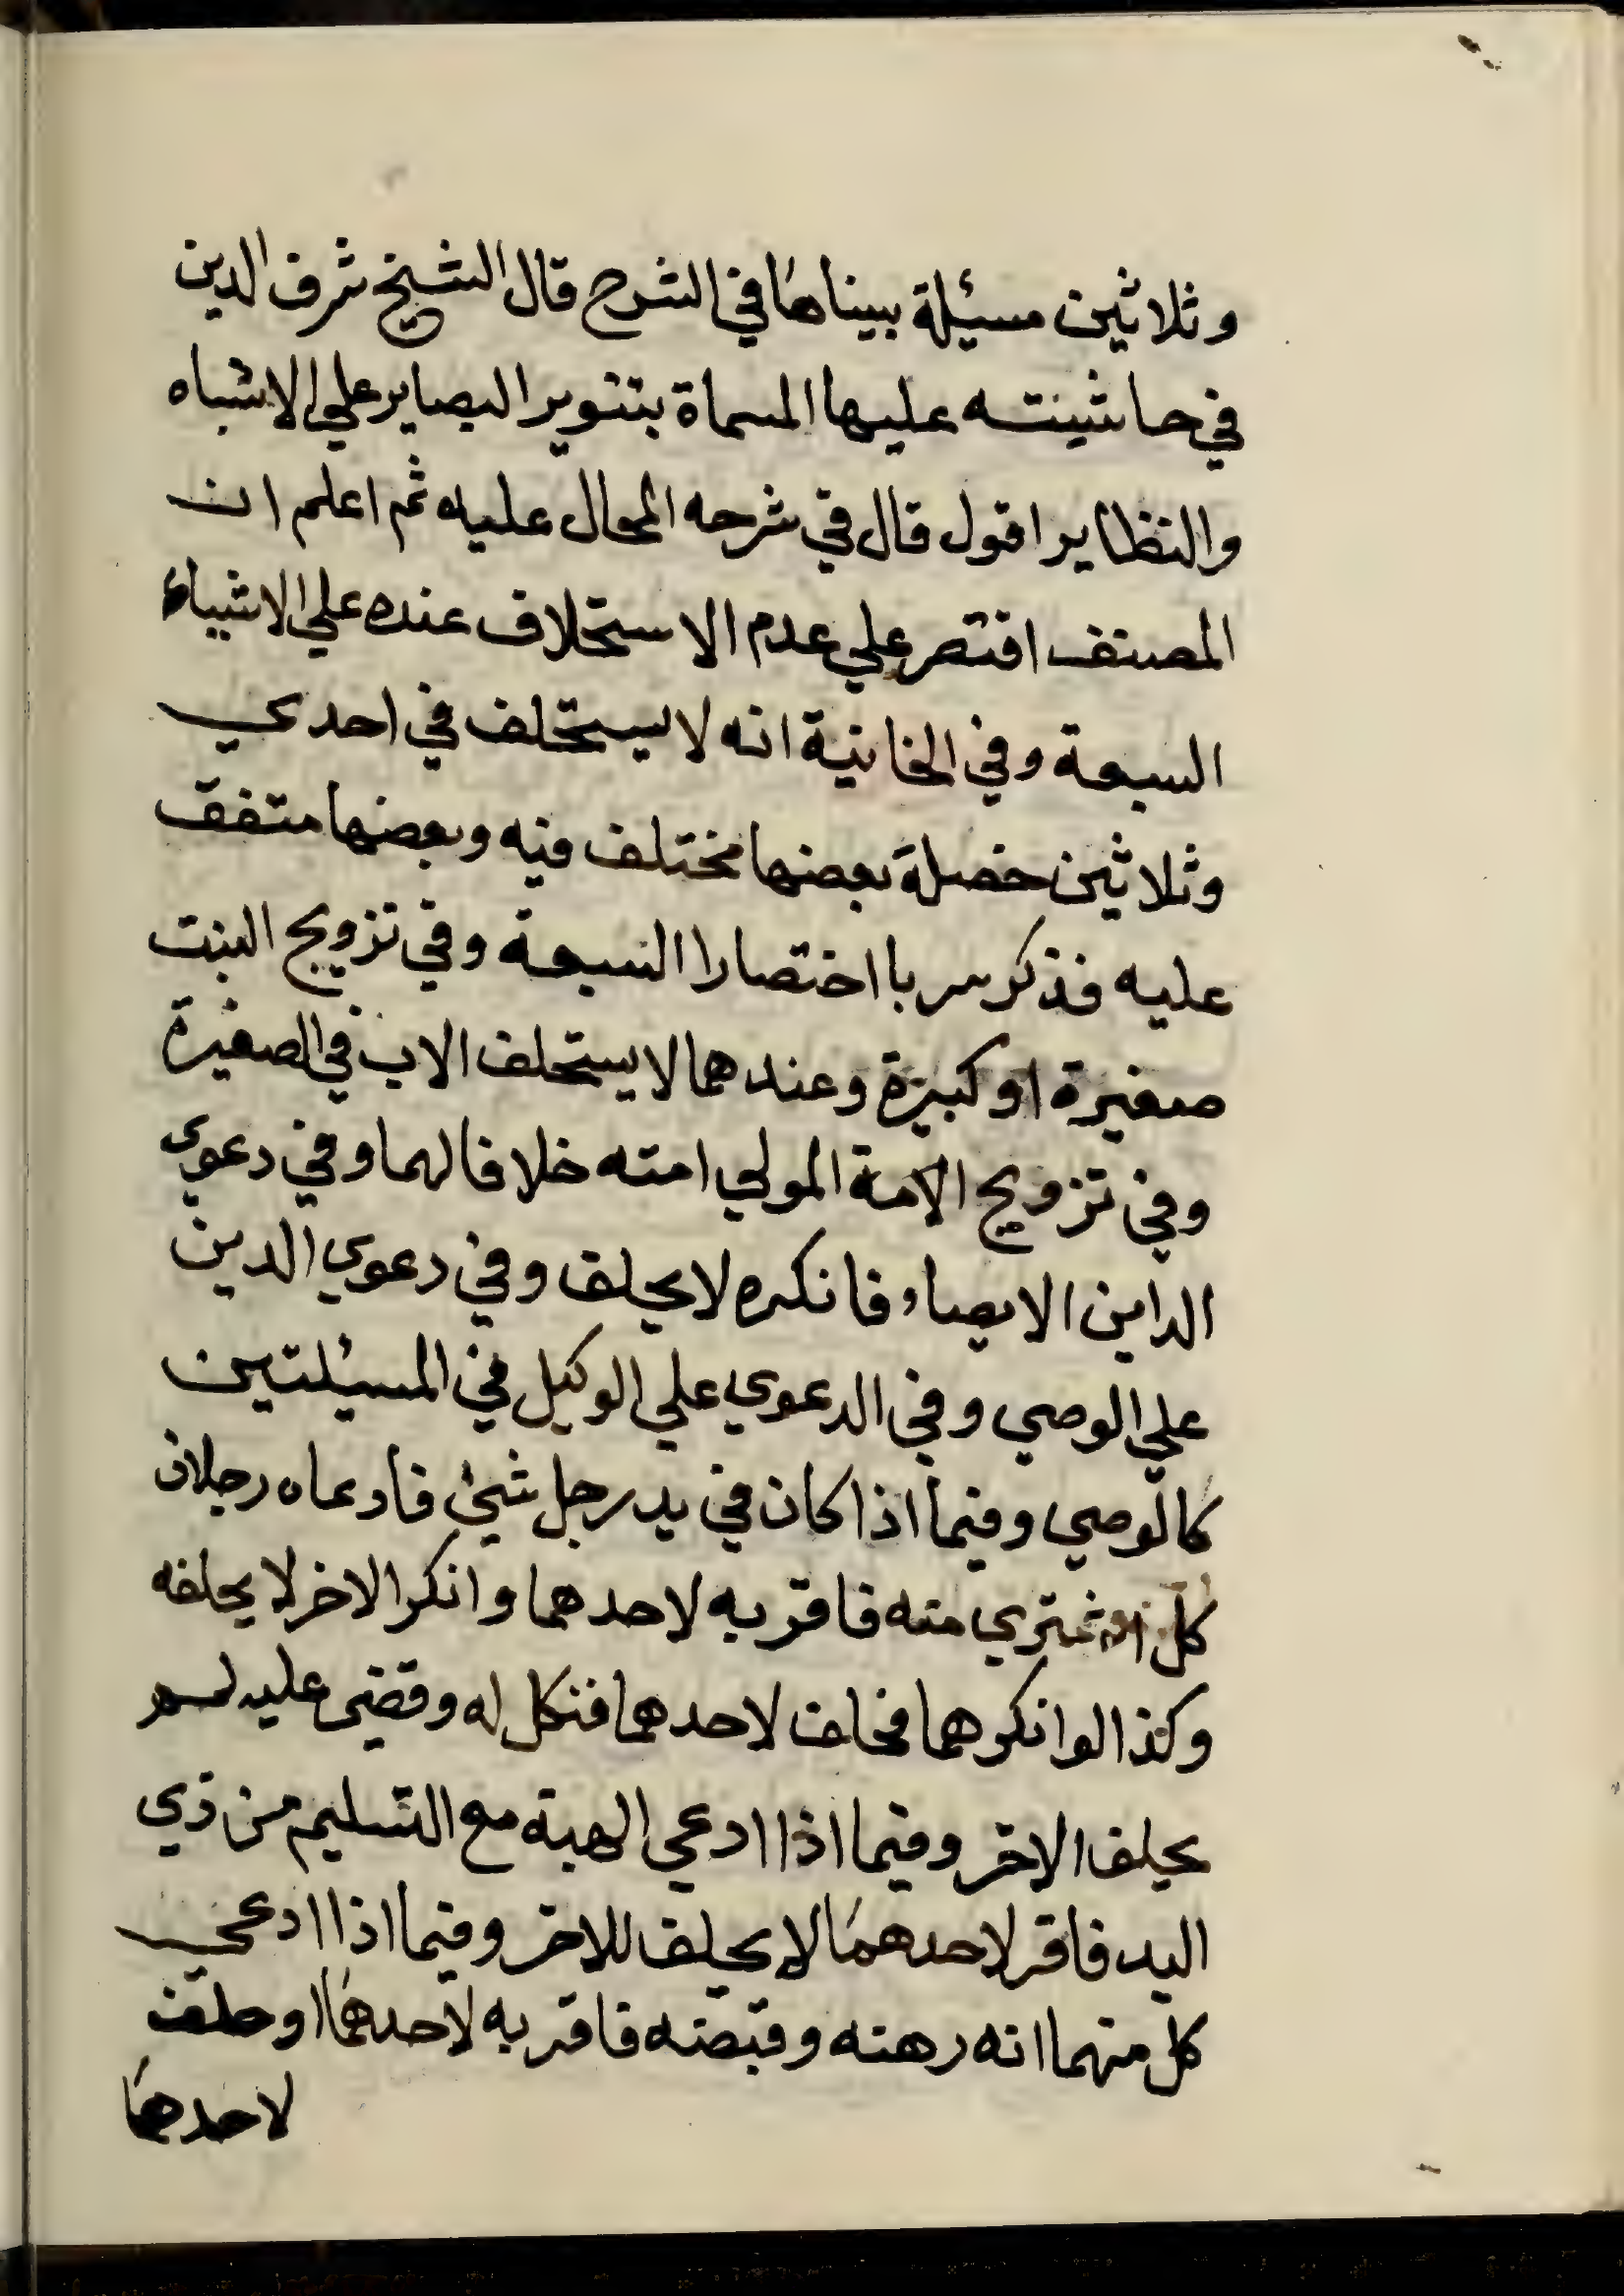 وثلاثين مسيئلة بيناها في الشرح قال الشيخ شرف الدين
في حاشيته عليها المسماة بتنوير البصاير علي الاشباه
والنظاير اقول قال في شرحه المحال عليه ثم اعلم ان
المصنف اقتصر علي عدم الاستحلاف عنده علي الاشياء
السبعة وفي الخانية انه لا يستحلف في احدي
وثلاثين خصلة بعضها مختلف فيه وبعضها متفق
عليه فذكر سربا اختصارا السبعة وفي تزويج البنت
صغيرة او كبيرة وعندهما لا يستحلف الاب في الصغيرة
وفي تزويج الامة المولي امته خلافا لهما وفي دعوي
الداين الايصاء فانكره لا يحلف وفي دعوي الدين
علي الوصي وفي الدعوي علي الوكيل في المسيئلتين
كالوصي وفيما اذا كان في يد رجل شيئ فادعاه رجلان
كل اشتري منه فاقر به لاحدهما وانكر الاخر لا يحلفه
وكذا لو انكرهما فحلف لاحدهما فنكل له وقضي عليه لم
يحلف الاخر وفيما اذا ادعي الهبة مع التسليم من ذي
اليد فاقر لاحدهما لا يحلف للاخر وفيما اذا ادعي
كل منهما انه رهنه وقبضه فاقر به لاحدهما او حلف
لاحدهما